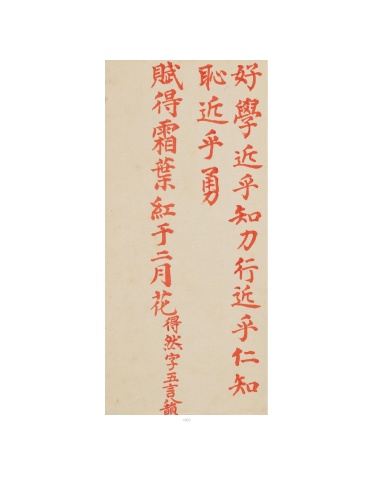 好學近乎知力行近乎仁知
恥近乎勇
賦得霜葉紅于二月花得然字五言韻